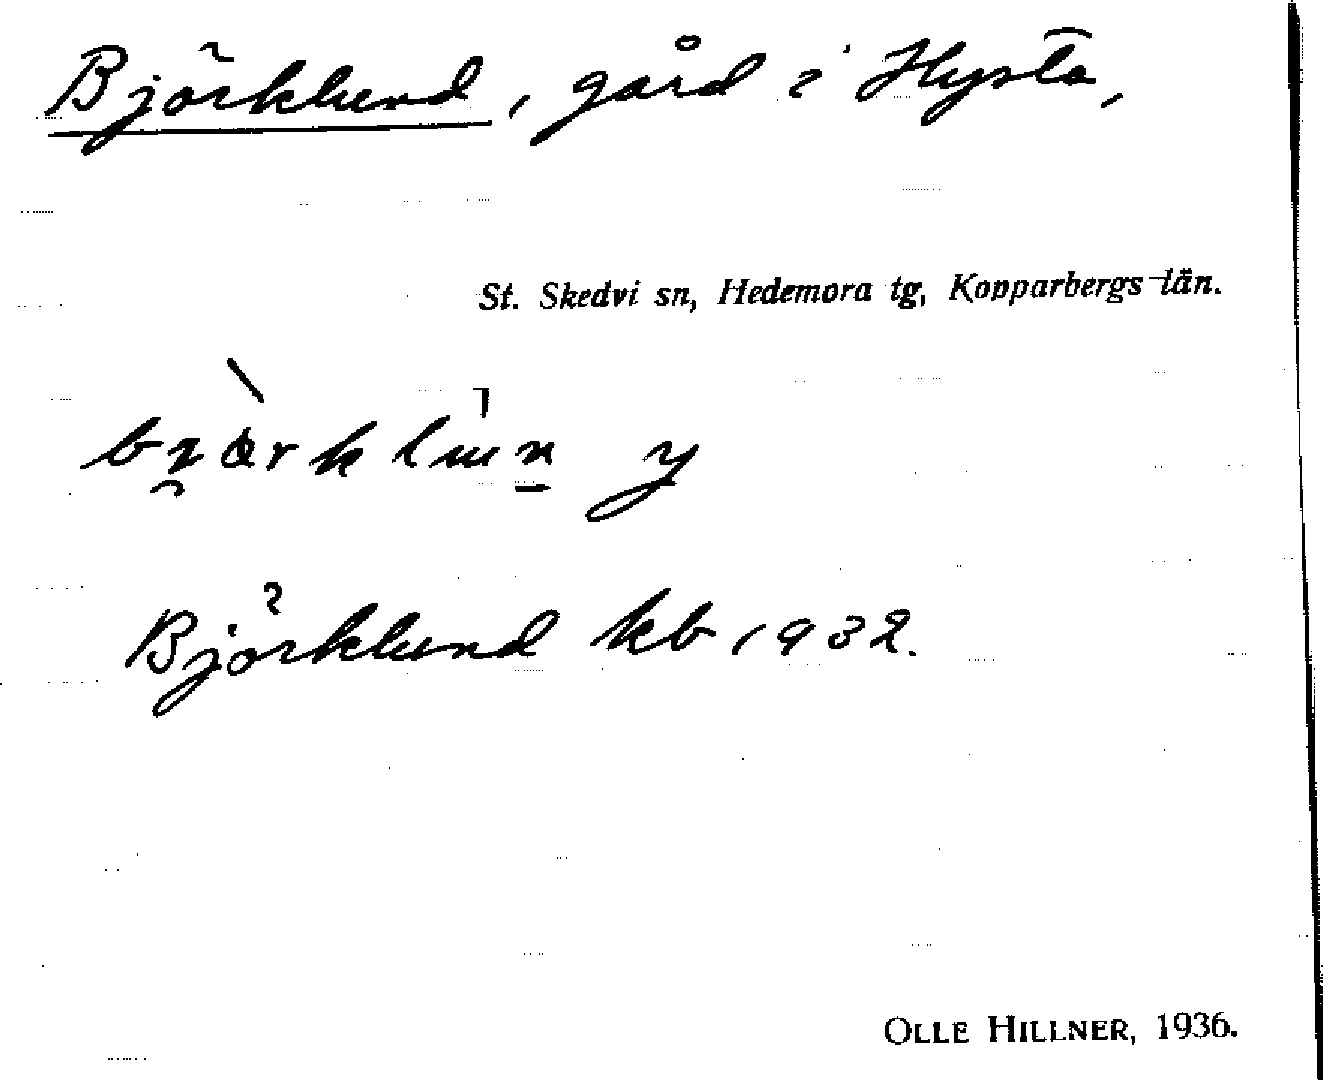 Björklund, gård i Hysta,
St. Skedvi sn, Hedemora tg, Kopparbergs län.
Björklund kb 1932.
OLLE HILLNER, 1936.